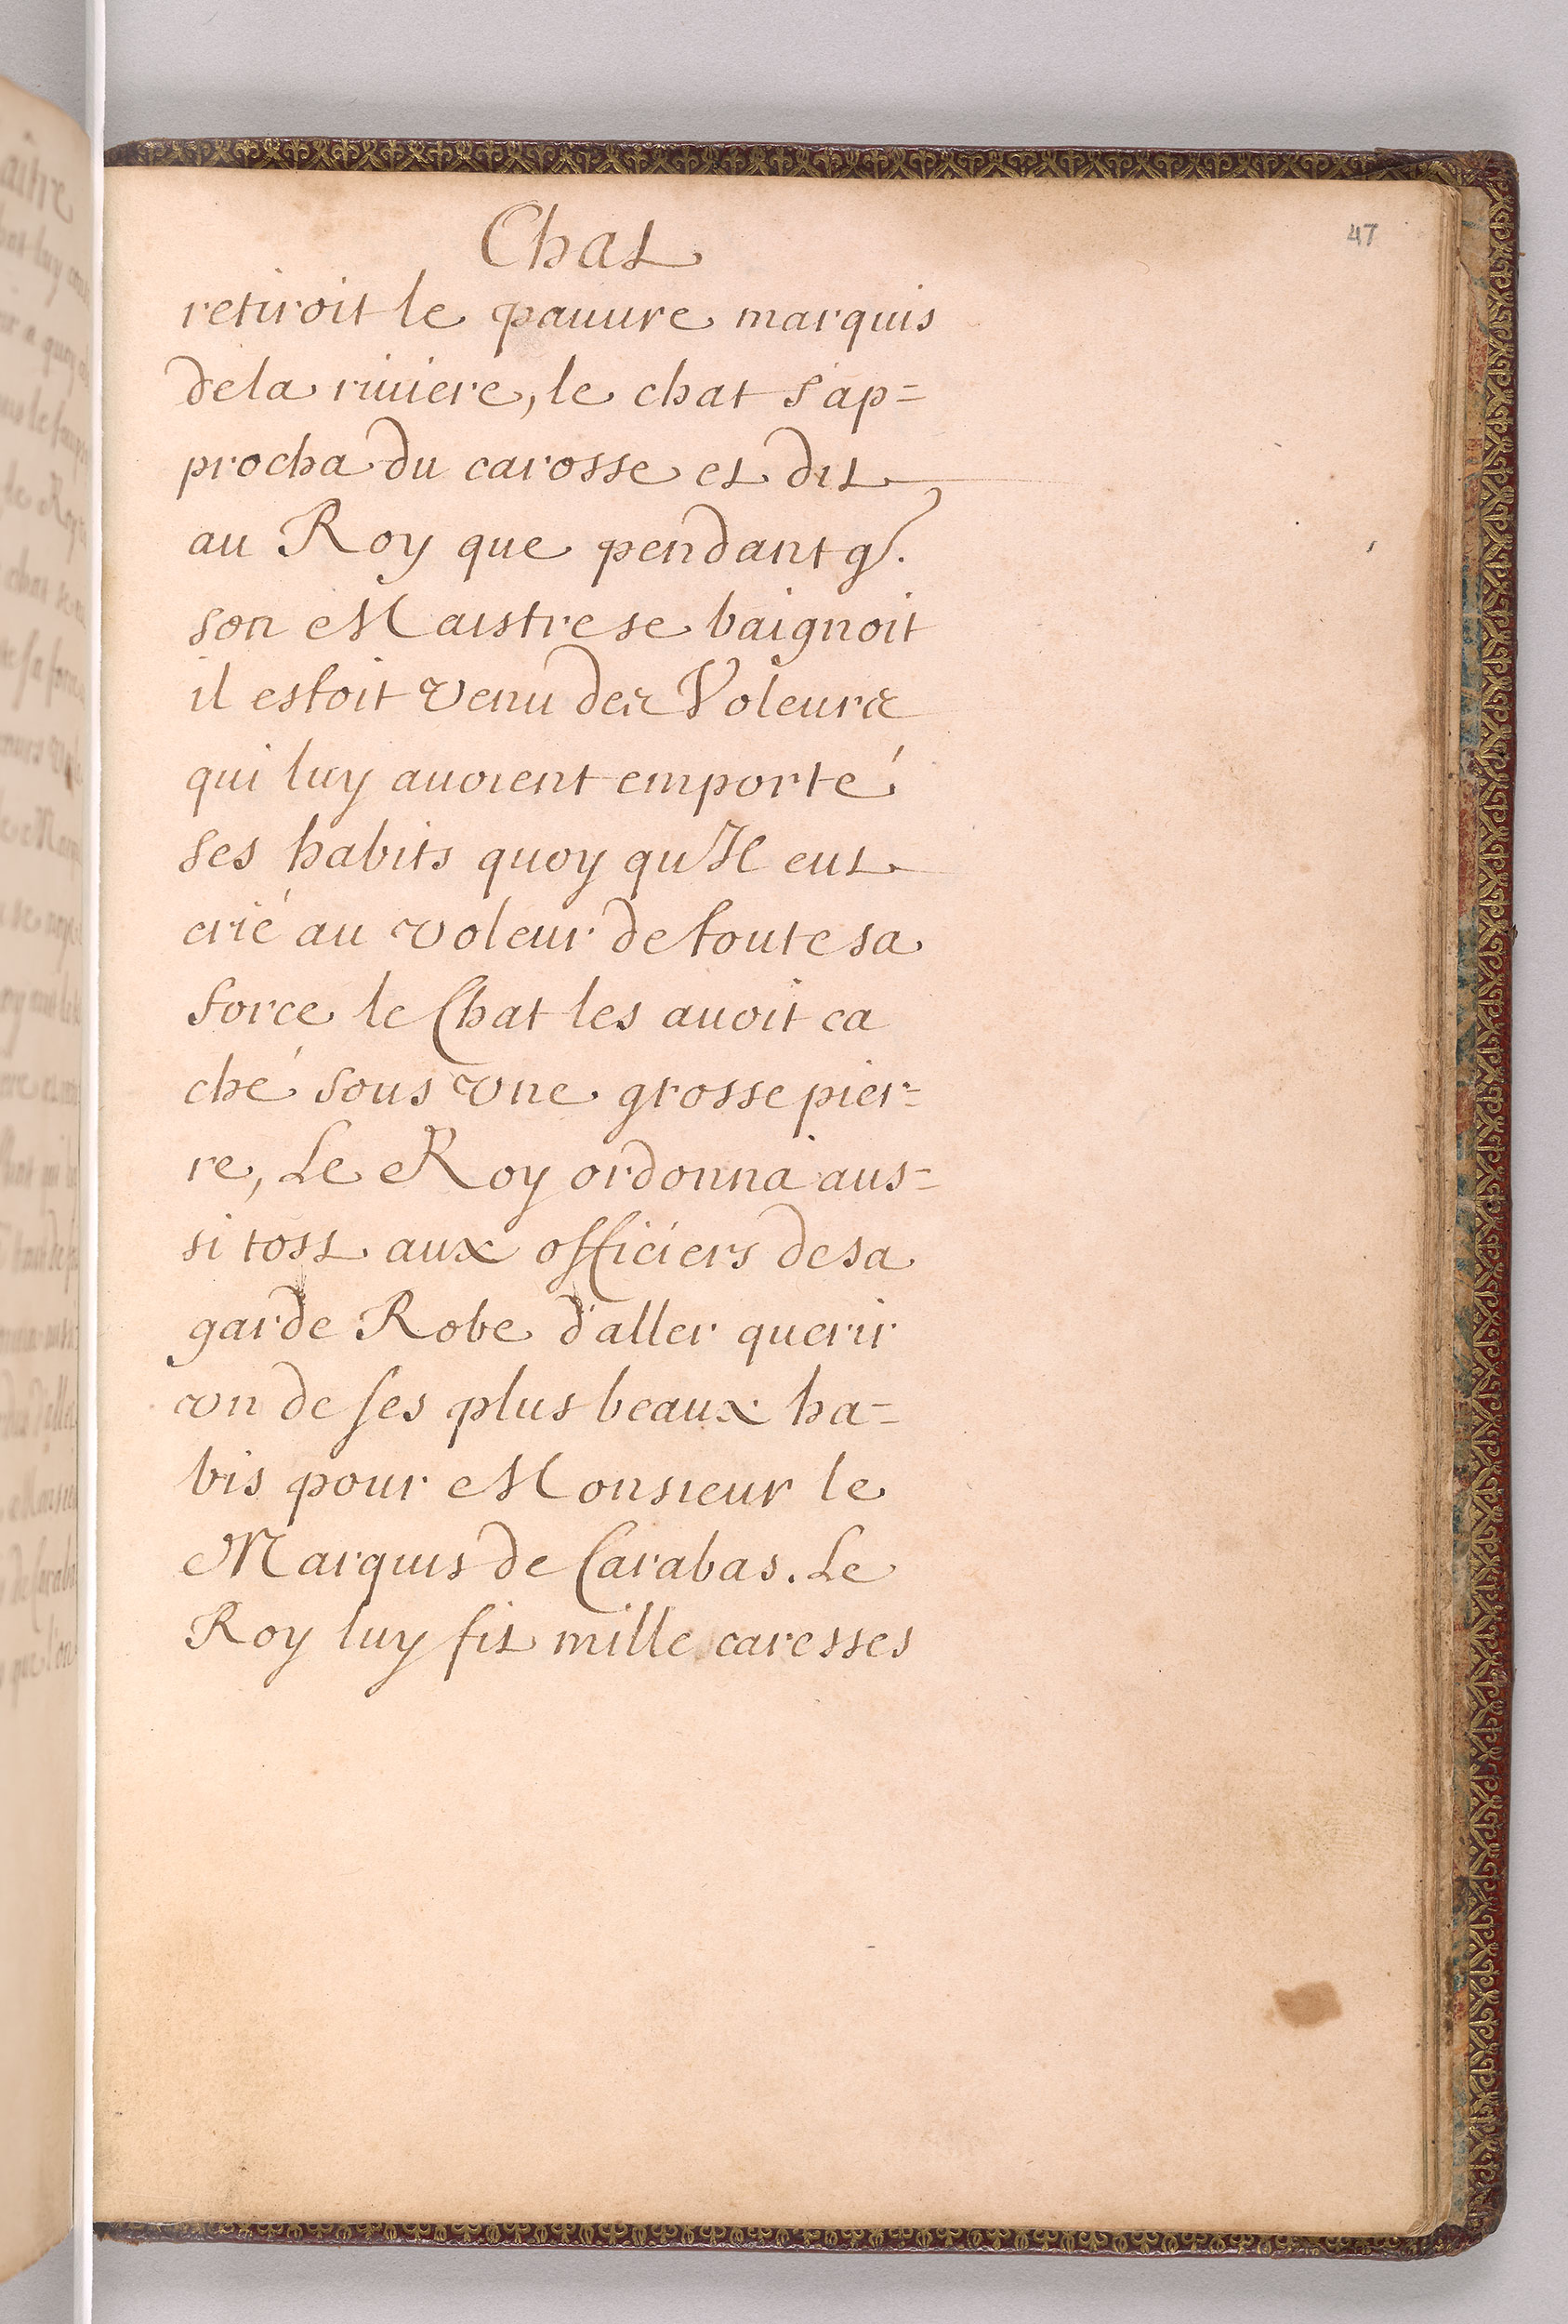 47
Chat
retiroit le pauure marquis
dela riuiere, le chat s'ap=
procha du carosse et dit
au Roy que pendant q.
son Maistre se baignoit
il estoit venu des Voleurs
qui luy auoient emporté
ses habits quoy qu'Il eut
crié au voleur de toute sa
force le Chat les auoit ca
ché sous vne grosse pier=
re, Le Roy ordonna aus=
si tost aux officiers de sa
garde Robe d'aller querir
vn de ses plus beaux ha=
bis pour Monsieur le
Marquis de Carabas. Le
Roy luy fit mille caresses